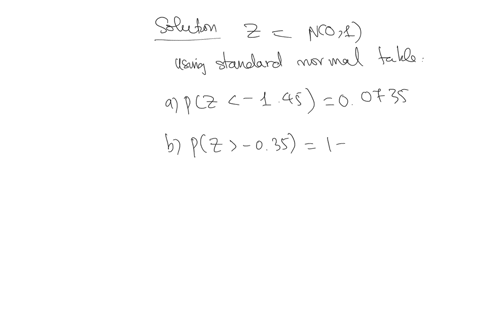 Solution Z ~ N(0,1)
using standard normal table.
a) P(Z < -1.45) = 0.0735
b) P(Z > -0.35) = 1-